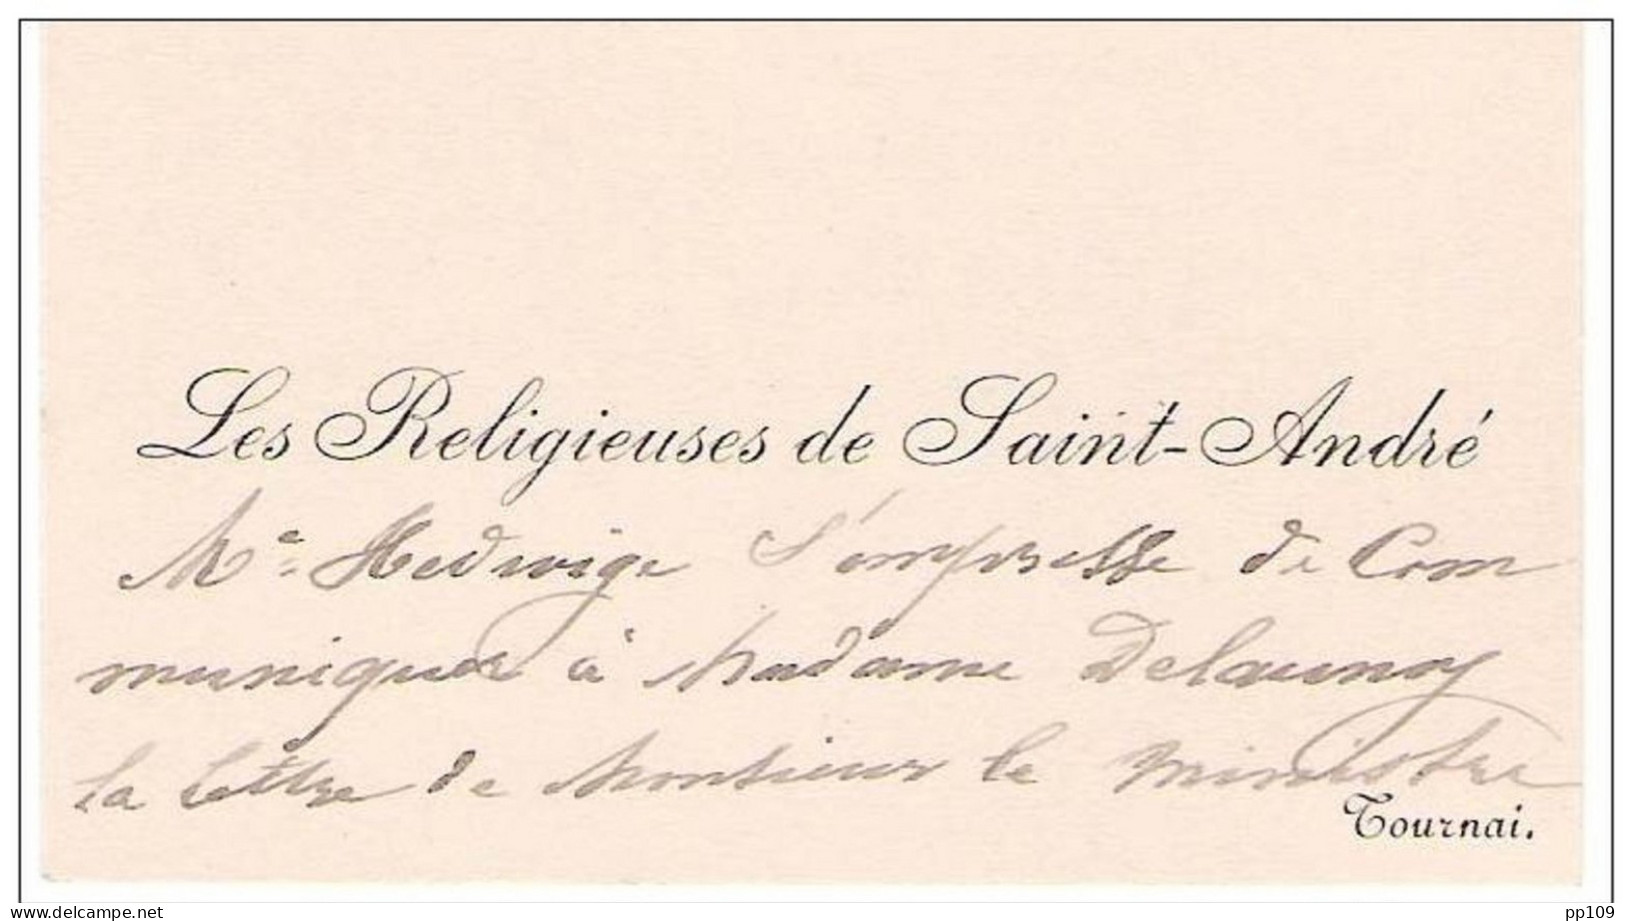 Les Religieuses de Saint-André
Me. Hedwige s'empresse de Com
muniquer à Madame Delaunoy
la lettre de Monsieur le Ministre
Tournai.
www.delcampe.net
pp109